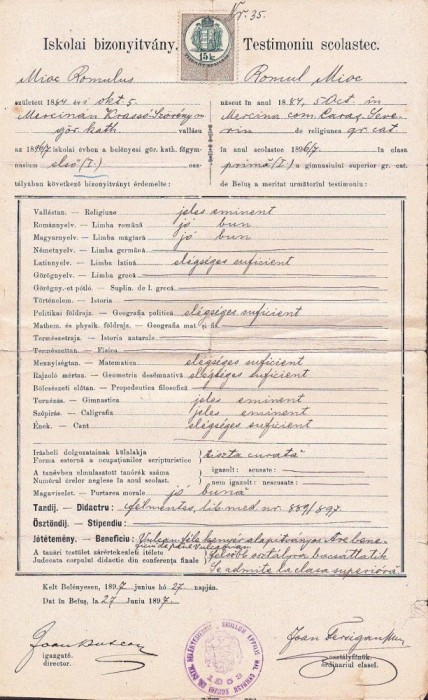 Nr. 35.
15 kr
Iskolai bizonyitvány. Testimoniu scolastec.
Mioc Romulus Romul Mioc
született 1884 évi okt. 5. născut in anul 1884, 5 Oct. în
Mercinan Krassó-Szörény m Mercina com. Caraș-Seve-
gör. kath. vallásu rin de religiunea gr. cat.
az 1896/7 iskolai évben a belényesi gör. kath. főgym- in anul scolastec 1896/7. in clasa
nasium első (I.) osz- primă (I.) a gimnasiului superior gr. cat.
tályában következő bizonyitványt érdemelte: de Beiuș a meritat următorul testimoniu:
Vallástan. — Religiune jeles eminent
Românnyelv. — Limba română jó bun
Magyarnyelv. — Limba magiară jó bun
Németnyelv. — Limba germână
Latinnyelv. — Limba latină elégséges suficient
Görögnyelv. — Limba grecă
Görögny.-ct pótló. — Suplin. de l. grecă
Történelem. — Istoria
Politikai földrajz. — Geografia politică elégséges suficient
Mathem. és physik. földrajz. — Geografia mat. și fis.
Természetrajz. — Istoria naturale
Természettan. — Fisica
Mennyiségtan. — Matematica elégséges suficient
Rajzoló mértan. — Geometria desemnativă elégséges suficient
Bölcsészeti előtan. — Propedeutica filosofică
Tornázás. — Gimnastica jeles eminent
Szépirás. — Caligrafia jeles eminent
Ének. — Cant elégséges suficient
Irásbeli dolgozatainak külalakja
Forma esternă a ocupațiunilor scripturistice tiszta curată
A tanévben elmulasztott tanórák száma igazolt: scusate:
Numărul orelor neglese în anul scolast. nem igazolt: nescusate:
Magaviselet. — Purtarea morale jó bună
Tandij. — Didactru: felmentes, lib. med nr. 889/897.
Ösztöndij. — Stipendiu:
Jótétemény. — Beneficiu: kenyér alapitványos Are bene-
A tanári testület zárértekezletí itélete felsőbb osztályra bocsáttatik
Judecata corpului didactic din conferența finale Se admite la clasa superioră
Kelt Belényesen, 1897 junius hó 27 napján.
Dat în Beiuș, la 27 Juniu 1897.
igazgató. osztályfőnök.
director. ordinariul clasei.
1863